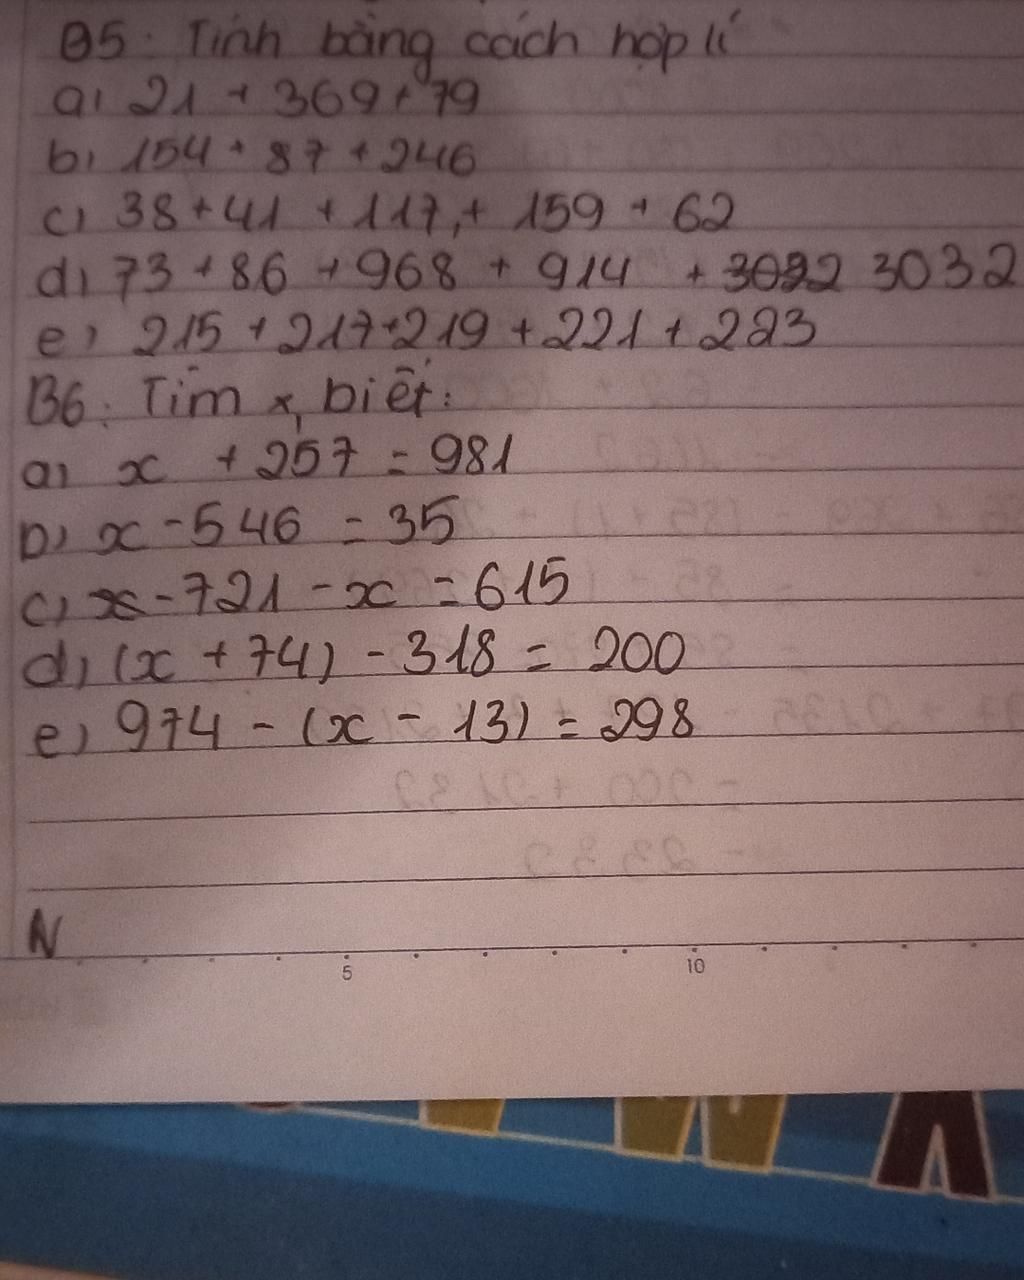 B5: Tính bằng cách hợp lí
a) 21 + 369 + 79
b) 154 + 87 + 246
c) 38 + 41 + 117 + 159 + 62
d) 73 + 86 + 968 + 914 + 3032
e) 215 + 217 + 219 + 221 + 223
B6: Tìm x, biết:
a) x + 257 = 981
b) x - 546 = 35
c) 721 - x = 615
d) (x + 74) - 318 = 200
e) 974 - (x - 13) = 298
N
5 10